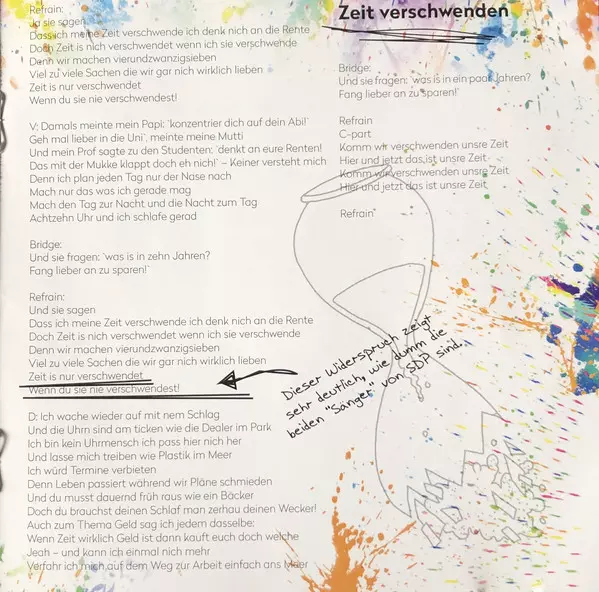 Zeit verschwenden
Refrain:
Ja sie sagen
Dass ich meine Zeit verschwende ich denk nich an die Rente
Doch Zeit is nich verschwendet wenn ich sie verschwende
Denn wir machen vierundzwanzigsieben
Viel zu viele Sachen die wir gar nich wirklich lieben
Zeit is nur verschwendet
Wenn du sie nie verschwendest!
V: Damals meinte mein Papi: ‘konzentrier dich auf dein Abi!‘
Geh mal lieber in die Uni‘, meinte meine Mutti
Und mein Prof sagte zu den Studenten: ‘denkt an eure Renten!
Das mit der Mukke klappt doch eh nich!‘ – Keiner versteht mich
Denn ich plan jeden Tag nur der Nase nach
Mach nur das was ich gerade mag
Mach den Tag zur Nacht und die Nacht zum Tag
Achtzehn Uhr und ich schlafe gerad
Bridge:
Und sie fragen: ‘was is in zehn Jahren?
Fang lieber an zu sparen!‘
Refrain:
Und sie sagen
Dass ich meine Zeit verschwende ich denk nich an die Rente
Doch Zeit is nich verschwendet wenn ich sie verschwende
Denn wir machen vierundzwanzigsieben
Viel zu viele Sachen die wir gar nich wirklich lieben
Zeit is nur verschwendet
Wenn du sie nie verschwendest!
D: Ich wache wieder auf mit nem Schlag
Und die Uhrn sind am ticken wie die Dealer im Park
Ich bin kein Uhrmensch ich pass hier nich her
Und lasse mich treiben wie Plastik im Meer
Ich würd Termine verbieten
Denn Leben passiert während wir Pläne schmieden
Und du musst dauernd früh raus wie ein Bäcker
Doch du brauchst deinen Schlaf man zerhau deinen Wecker!
Auch zum Thema Geld sag ich jedem dasselbe:
Wenn Zeit wirklich Geld ist dann kauft euch doch welche
Jeah – und kann ich einmal nich mehr
Verfahr ich mich auf dem Weg zur Arbeit einfach ans Meer
Bridge:
Und sie fragen: ‘was is in ein paar Jahren?
Fang lieber an zu sparen!‘
Refrain
C-part
Komm wir verschwenden unsre Zeit
Hier und jetzt das ist unsre Zeit
Komm wir verschwenden unsre Zeit
Hier und jetzt das ist unsre Zeit
Refrain
Dieser Widerspruch zeigt
sehr deutlich, wie dumm die
beiden "Sänger" von SDP sind.